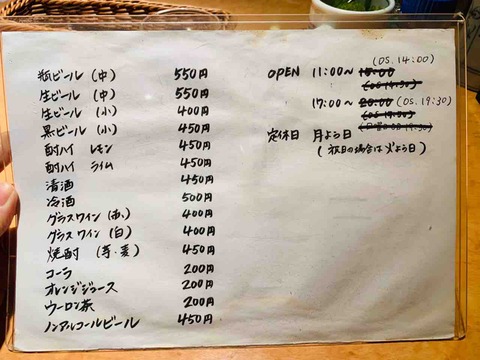 瓶ビール (中) 550円
生ビール (中) 550円
生ビール (小) 400円
黒ビール (小) 450円
酎ハイ レモン 450円
酎ハイ ライム 450円
清酒 450円
冷酒 500円
グラスワイン (赤) 400円
グラスワイン (白) 400円
焼酎 (芋・麦) 450円
コーラ 200円
オレンジジュース 200円
ウーロン茶 200円
ノンアルコールビール 450円
(OS. 14:00)
OPEN 11:00~ 15:00
17:00~ 20:00 (OS. 19:30)
定休日 月よう日
(祝日の場合は火よう日)